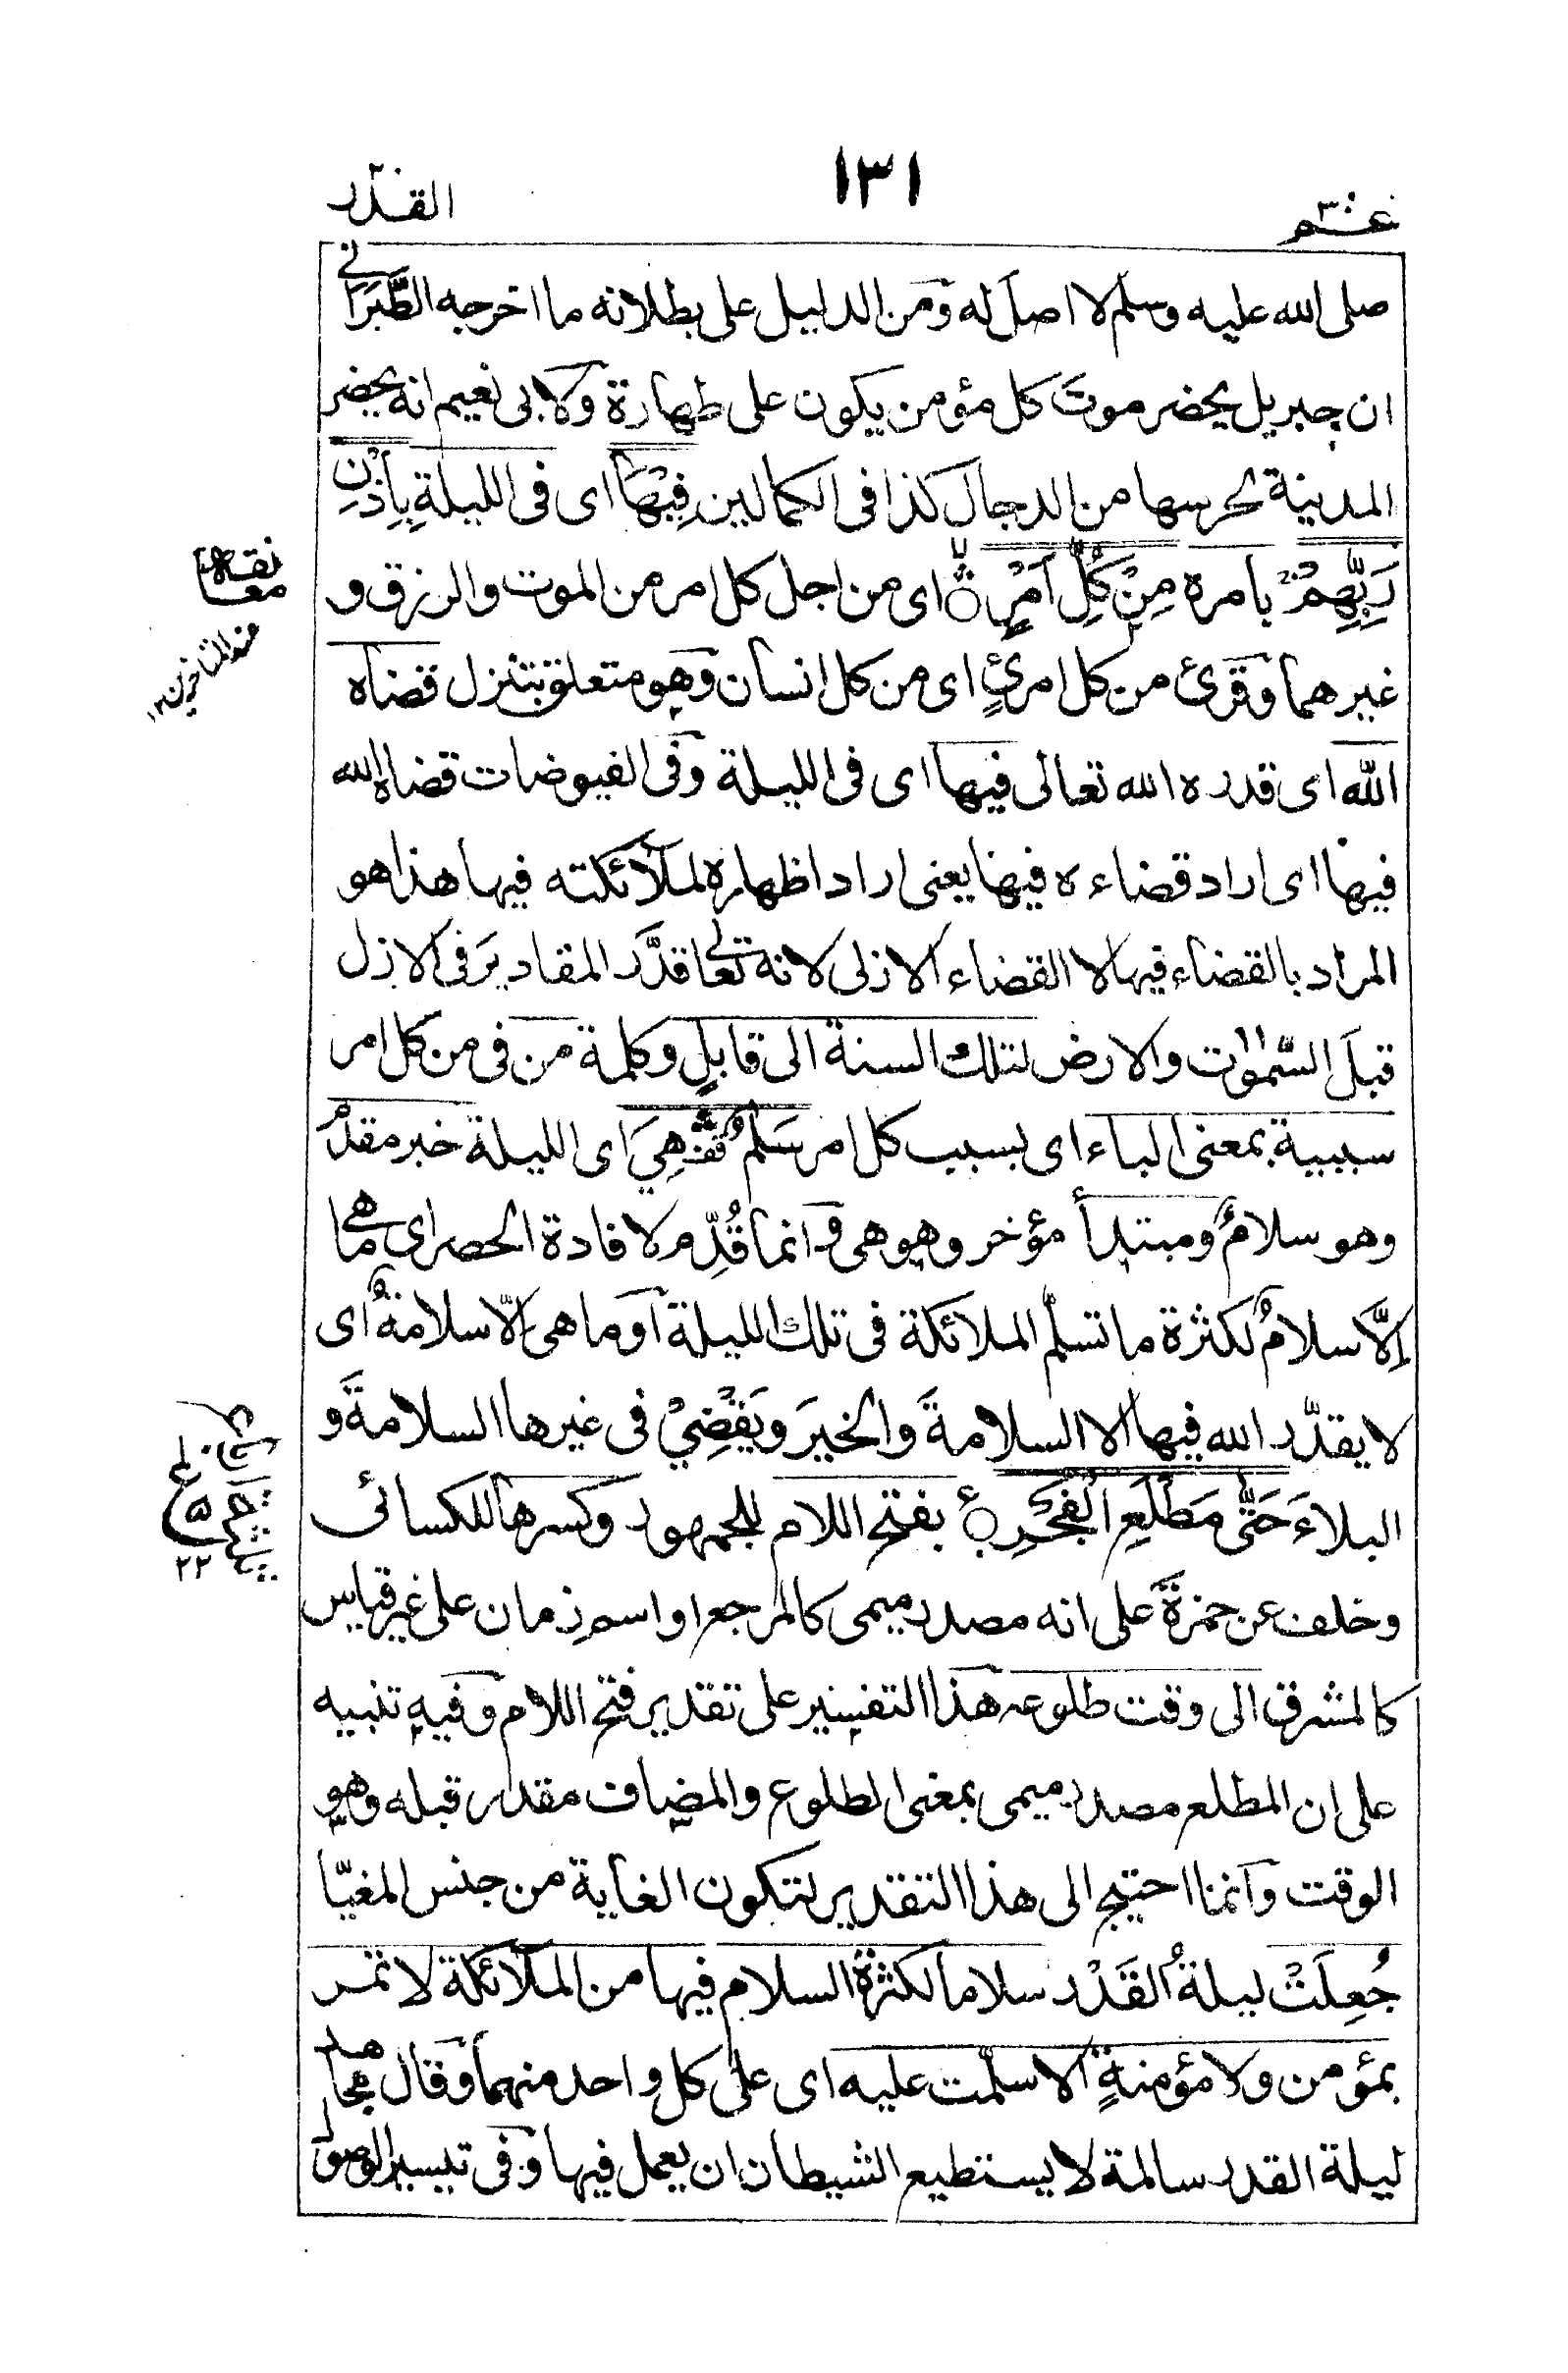 عم ٣٠
١٣١
القدر
صلى الله عليه وسلم لا اصلَ له وَمن الدليل على بطلانه ما اخرجه الطَّبَرَانى
ان جبريل يحضر موتَ كل مؤمن يكون على طهارة ولابى نعيم انه يحضر
المدينة لحرسها من الدجال كذا فى الكمالين فِيْهَا اى فى الليلةِ بِاِذْنِ
رَبِّهِمْ بامره مِنْ كُلِّ اَمْرٍ اى من اجل كل امر من الموت والرزق و
غيرهما وقرئ من كل امرئٍ اى من كل انسان وهو متعلق بتنزل قضاه
الله اى قدره الله تعالى فيها اى فى الليلة وفى الفيوضات قضاه الله
فيها اى اراد قضاءه فيها يعنى اراد اظهاره لملائكته فيها هذا هو
المراد بالقضاء فيها لا القضاء الازلى لانه تعالى قدَّر المقاديرَ فى الازل
قبلَ السّمٰوٰت والارض لتلك السنة الى قابلٍ وكلمة من فى من كل امر
سببية بمعنى الباء اى بسبب كل امر سَلٰمٌ هِيَ اى الليلة خبر مقدمٌ
وهو سلامٌ ومبتدأ مؤخر وهو هى وانما قُدِّم لافادة الحصر اى ما هى
اِلَّا سلامٌ لكثرة ما تسلّم الملائكة فى تلك الليلة اَو ما هى الّا سلامةٌ اى
لا يقدّر الله فيها الا السلامةَ والخيرَ ويَقْضِيْ فى غيرها السلامةَ و
البلاءَ حَتّٰى مَطْلَعِ الْفَجْرِ بفتح اللام للجمهور وكسرها للكسائى
وخلف عن حمزة على انه مصدر ميمى كالمرجع او اسم زمان على غير قياس
كالمشرق الى وقت طلوعه هذا التفسير على تقدير فتح اللام وفيه تنبيه
على ان المطلع مصدر ميمى بمعنى الطلوع والمضاف مقدر قبله وهو
الوقت وانما احتيج الى هذا التقدير لتكون الغاية من جنس المغيّا
جُعِلَتْ ليلةُ القَدْر سلاما لكثرة السلام فيها من الملائكة لا تمر
بمؤمن ولا مؤمنةٍ الا سلّمت عليه اى على كل واحد منهما وقال مجاهد
ليلة القدر سالمة لا يستطيع الشيطان ان يعمل فيها وفى تيسير الوصول
معانقه
عند المتاخرين ١٢
ع
٥
٢٢